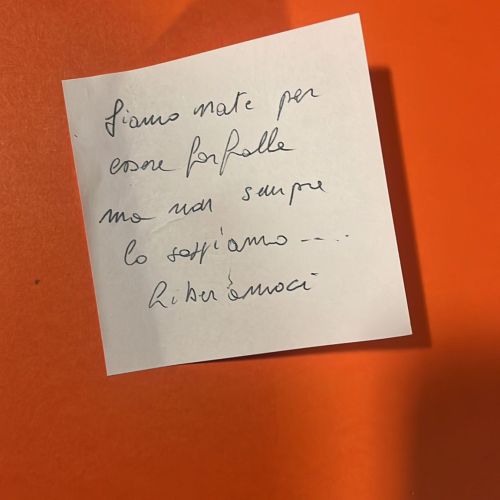 Siamo nate per
essere farfalle
ma non sempre
lo sappiamo....
Liberiamoci